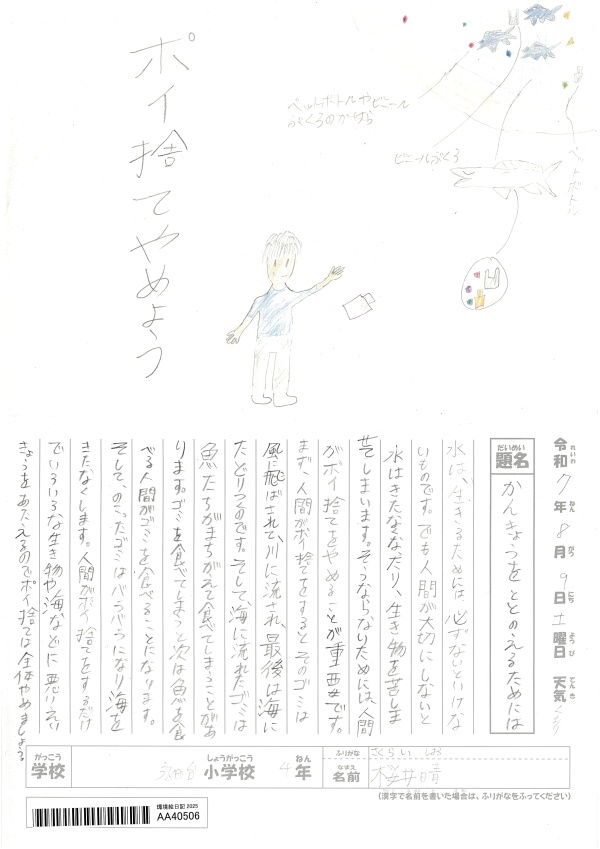 ポイ捨てやめよう
ペットボトルやビニール
ぶくろのかけら
ビニールぶくろ
ペットボトル
令和7年8月9日土曜日 天気くもり
れいわ ねん がつ にち ようび てんき
だいめい
題名
かんきょうをととのえるためには
水は、生きるためには、必ずないといけな
いものです。でも人間が大切にしないと
水はきたなくなたり、生き物を苦しま
せてしまいます。そうならないためには、人間
がポイ捨てをやめることが重要です。
まず、人間がポイ捨てをするとそのゴミは
風に飛ばされて、川に流され、最後は海に
たどりつのです。そして、海に流れたゴミは
魚たちがまちがえて食べてしまうことがあ
ります。ゴミを食べてしまうと次は魚を食
べる人間がゴミを食べることになります。
そして、のこったゴミはバラバラになり海を
きたなくします。人間がポイ捨てをするだけ
でいろいろな生き物や海などに悪いえい
きょうをあたえるのでポイ捨ては全体やめましょう
がっこう
学校
しょうがっこう
小学校
ねん
4年
ふりがな
さくらい はる
なまえ
名前
桜井晴
(漢字で名前を書いた場合は、ふりがなをふってください)
環境絵日記 2025
AA40506